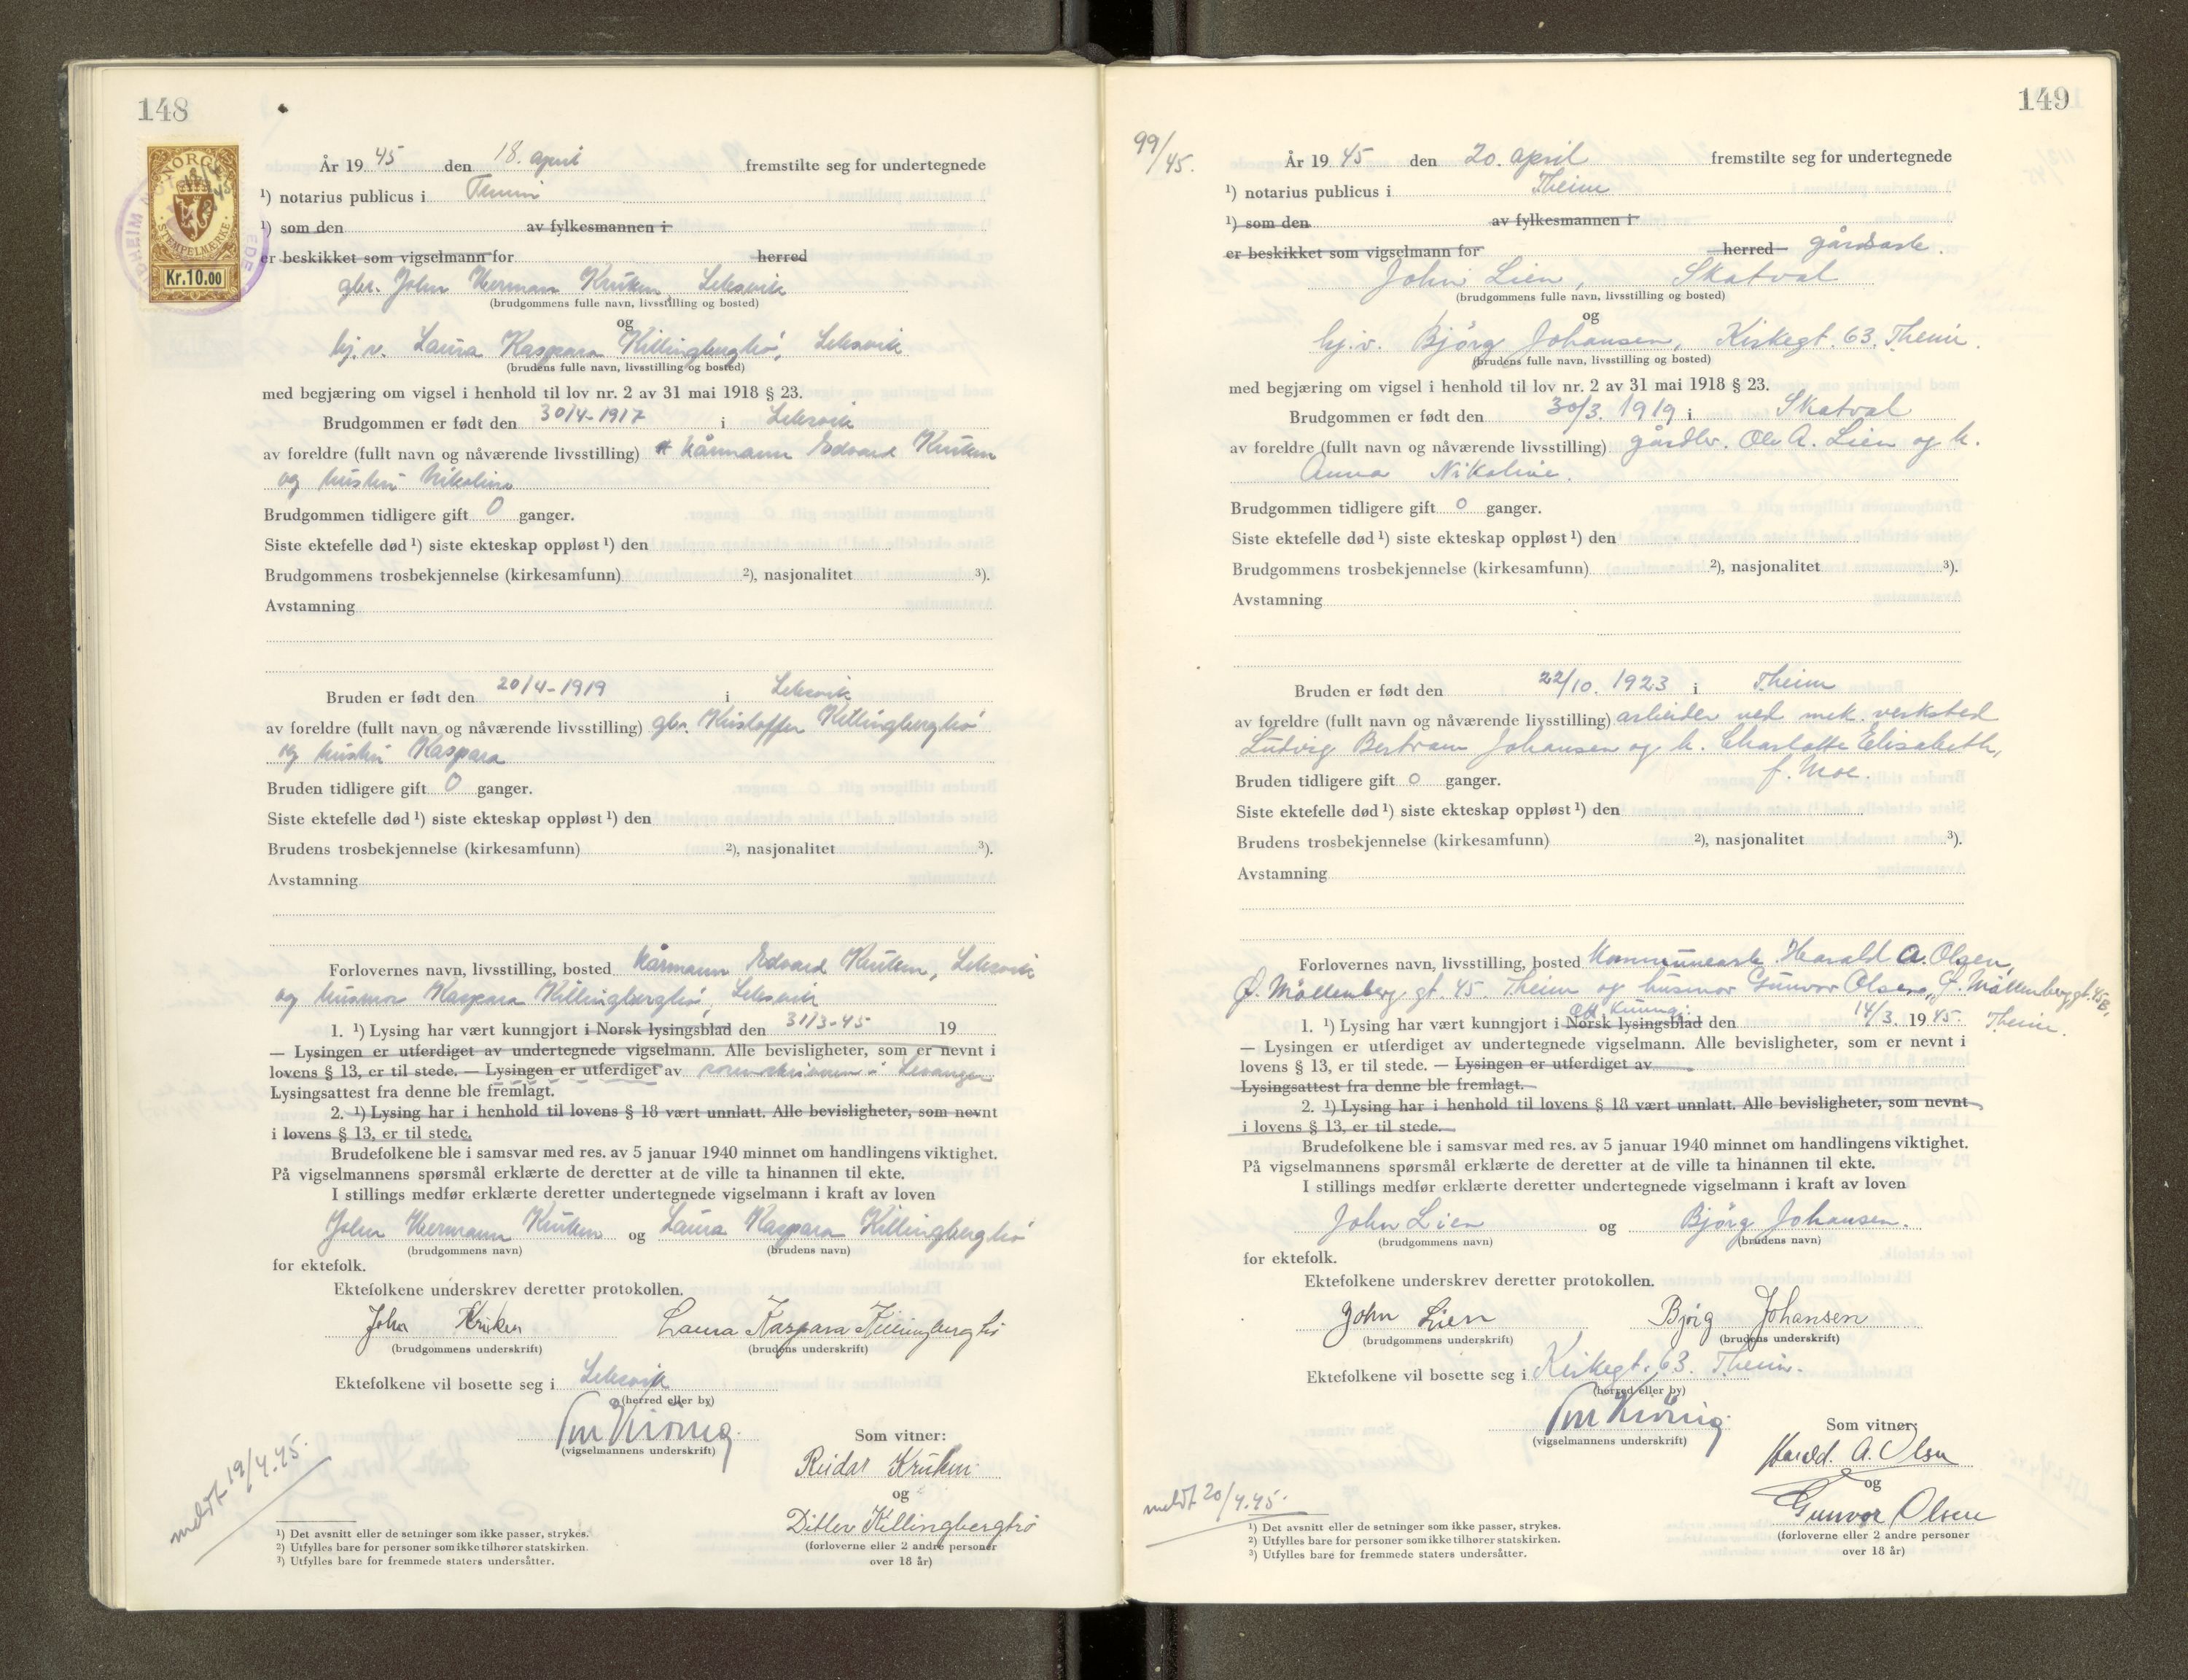 148
NORGE
STEMPELMÆRKE
Kr.10.00
År 19 45 den 18. april fremstilte seg for undertegnede
¹) notarius publicus i
¹) som den av fylkesmannen i
er beskikket som vigselmann for herred
gbr. John Herman Kruken, Leksvik
(brudgommens fulle navn, livsstilling og bosted)
og
hj.v. Laura Kaspara Killingberghø, Leksvik
(brudens fulle navn, livsstilling og bosted)
med begjæring om vigsel i henhold til lov nr. 2 av 31 mai 1918 § 23.
Brudgommen er født den 30/4-1917 i Leksvik
av foreldre (fullt navn og nåværende livsstilling) kårmann Edvard Kruken
og hustru Nikoline
Brudgommen tidligere gift 0 ganger.
Siste ektefelle død ¹) siste ekteskap oppløst ¹) den
Brudgommens trosbekjennelse (kirkesamfunn) ²), nasjonalitet ³).
Avstamning
Bruden er født den 20/4-1919 i Leksvik
av foreldre (fullt navn og nåværende livsstilling) gbr. Kristoffer Killingberghø
og hustru Kaspara
Bruden tidligere gift 0 ganger.
Siste ektefelle død ¹) siste ekteskap oppløst ¹) den
Brudens trosbekjennelse (kirkesamfunn) ²), nasjonalitet ³).
Avstamning
Forlovernes navn, livsstilling, bosted kårmann Edvard Kruken, Leksvik
og husmor Kaspara Killingberghø, Leksvik
1. ¹) Lysing har vært kunngjort i Norsk lysingsblad den 31/3-45 19
— Lysingen er utferdiget av undertegnede vigselmann. Alle bevisligheter, som er nevnt i
lovens § 13, er til stede. — Lysingen er utferdiget av sorenskriveren i Levanger
Lysingsattest fra denne ble fremlagt.
2. ¹) Lysing har i henhold til lovens § 18 vært unnlatt. Alle bevisligheter, som nevnt
i lovens § 13, er til stede.
Brudefolkene ble i samsvar med res. av 5 januar 1940 minnet om handlingens viktighet.
På vigselmannens spørsmål erklærte de deretter at de ville ta hinannen til ekte.
I stillings medfør erklærte deretter undertegnede vigselmann i kraft av loven
John Hermann Kruken og Laura Kaspara Killingberghø
(brudgommens navn) (brudens navn)
for ektefolk.
Ektefolkene underskrev deretter protokollen.
John Kruken Laura Kaspara Killingberghø
(brudgommens underskrift) (brudens underskrift)
Ektefolkene vil bosette seg i Leksvik
(herred eller by)
(vigselmannens underskrift)
Som vitner:
Reidar Kruken
og
Ditlev Killingberghø
(forloverne eller 2 andre personer
over 18 år)
meldt 19/4.45.
¹) Det avsnitt eller de setninger som ikke passer, strykes.
²) Utfylles bare for personer som ikke tilhører statskirken.
³) Utfylles bare for fremmede staters undersåtter.
149
99/45.
År 19 45 den 20. april fremstilte seg for undertegnede
¹) notarius publicus i Theim
¹) som den av fylkesmannen i
er beskikket som vigselmann for herred gårdsarb.
John Lien, Skatval
(brudgommens fulle navn, livsstilling og bosted)
og
hj.v. Bjørg Johansen, Kirkegt. 63. Theim.
(brudens fulle navn, livsstilling og bosted)
med begjæring om vigsel i henhold til lov nr. 2 av 31 mai 1918 § 23.
Brudgommen er født den 30/3. 1919 i Skatval
av foreldre (fullt navn og nåværende livsstilling) gårdbr. Ole A. Lien og h.
Anna Nikoline.
Brudgommen tidligere gift 0 ganger.
Siste ektefelle død ¹) siste ekteskap oppløst ¹) den
Brudgommens trosbekjennelse (kirkesamfunn) ²), nasjonalitet ³).
Avstamning
Bruden er født den 22/10. 1923 i Theim
av foreldre (fullt navn og nåværende livsstilling) arbeider ved mek. verksted
Ludvig Bertram Johansen og h. Charlotte Elisabeth,
f. Moe.
Bruden tidligere gift 0 ganger.
Siste ektefelle død ¹) siste ekteskap oppløst ¹) den
Brudens trosbekjennelse (kirkesamfunn) ²), nasjonalitet ³).
Avstamning
Forlovernes navn, livsstilling, bosted Kommunearb. Harald A. Olsen,
Ø. Møllenberg gt. 45. Theim og husmor Gunvor Olsen, Ø. Møllenberggt. 45B,
Theim.
1. ¹) Lysing har vært kunngjort i Norsk lysingsblad den 14/3. 19 45.
— Lysingen er utferdiget av undertegnede vigselmann. Alle bevisligheter, som er nevnt i
lovens § 13, er til stede. — Lysingen er utferdiget av
Lysingsattest fra denne ble fremlagt.
2. ¹) Lysing har i henhold til lovens § 18 vært unnlatt. Alle bevisligheter, som nevnt
i lovens § 13, er til stede.
Brudefolkene ble i samsvar med res. av 5 januar 1940 minnet om handlingens viktighet.
På vigselmannens spørsmål erklærte de deretter at de ville ta hinannen til ekte.
I stillings medfør erklærte deretter undertegnede vigselmann i kraft av loven
John Lien og Bjørg Johansen.
(brudgommens navn) (brudens navn)
for ektefolk.
Ektefolkene underskrev deretter protokollen.
John Lien Bjørg Johansen
(brudgommens underskrift) (brudens underskrift)
Ektefolkene vil bosette seg i Kirkegt. 63. Theim.
(herred eller by)
(vigselmannens underskrift)
Som vitner:
Harald. A. Olsen
og
Gunvor Olsen
(forloverne eller 2 andre personer
over 18 år)
meldt 20/4.45.
¹) Det avsnitt eller de setninger som ikke passer, strykes.
²) Utfylles bare for personer som ikke tilhører statskirken.
³) Utfylles bare for fremmede staters undersåtter.